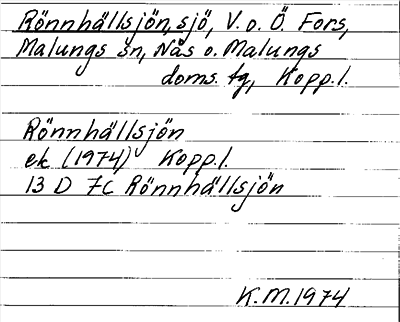 Rönnhällsjön, sjö, V. o. Ö. Fors,
Malungs sn, Nås o. Malungs
doms. tg, Kopp. l.
Rönnhällsjön
ek (1974) Kopp. l.
13 D 7c Rönnhällsjön
K.M. 1974